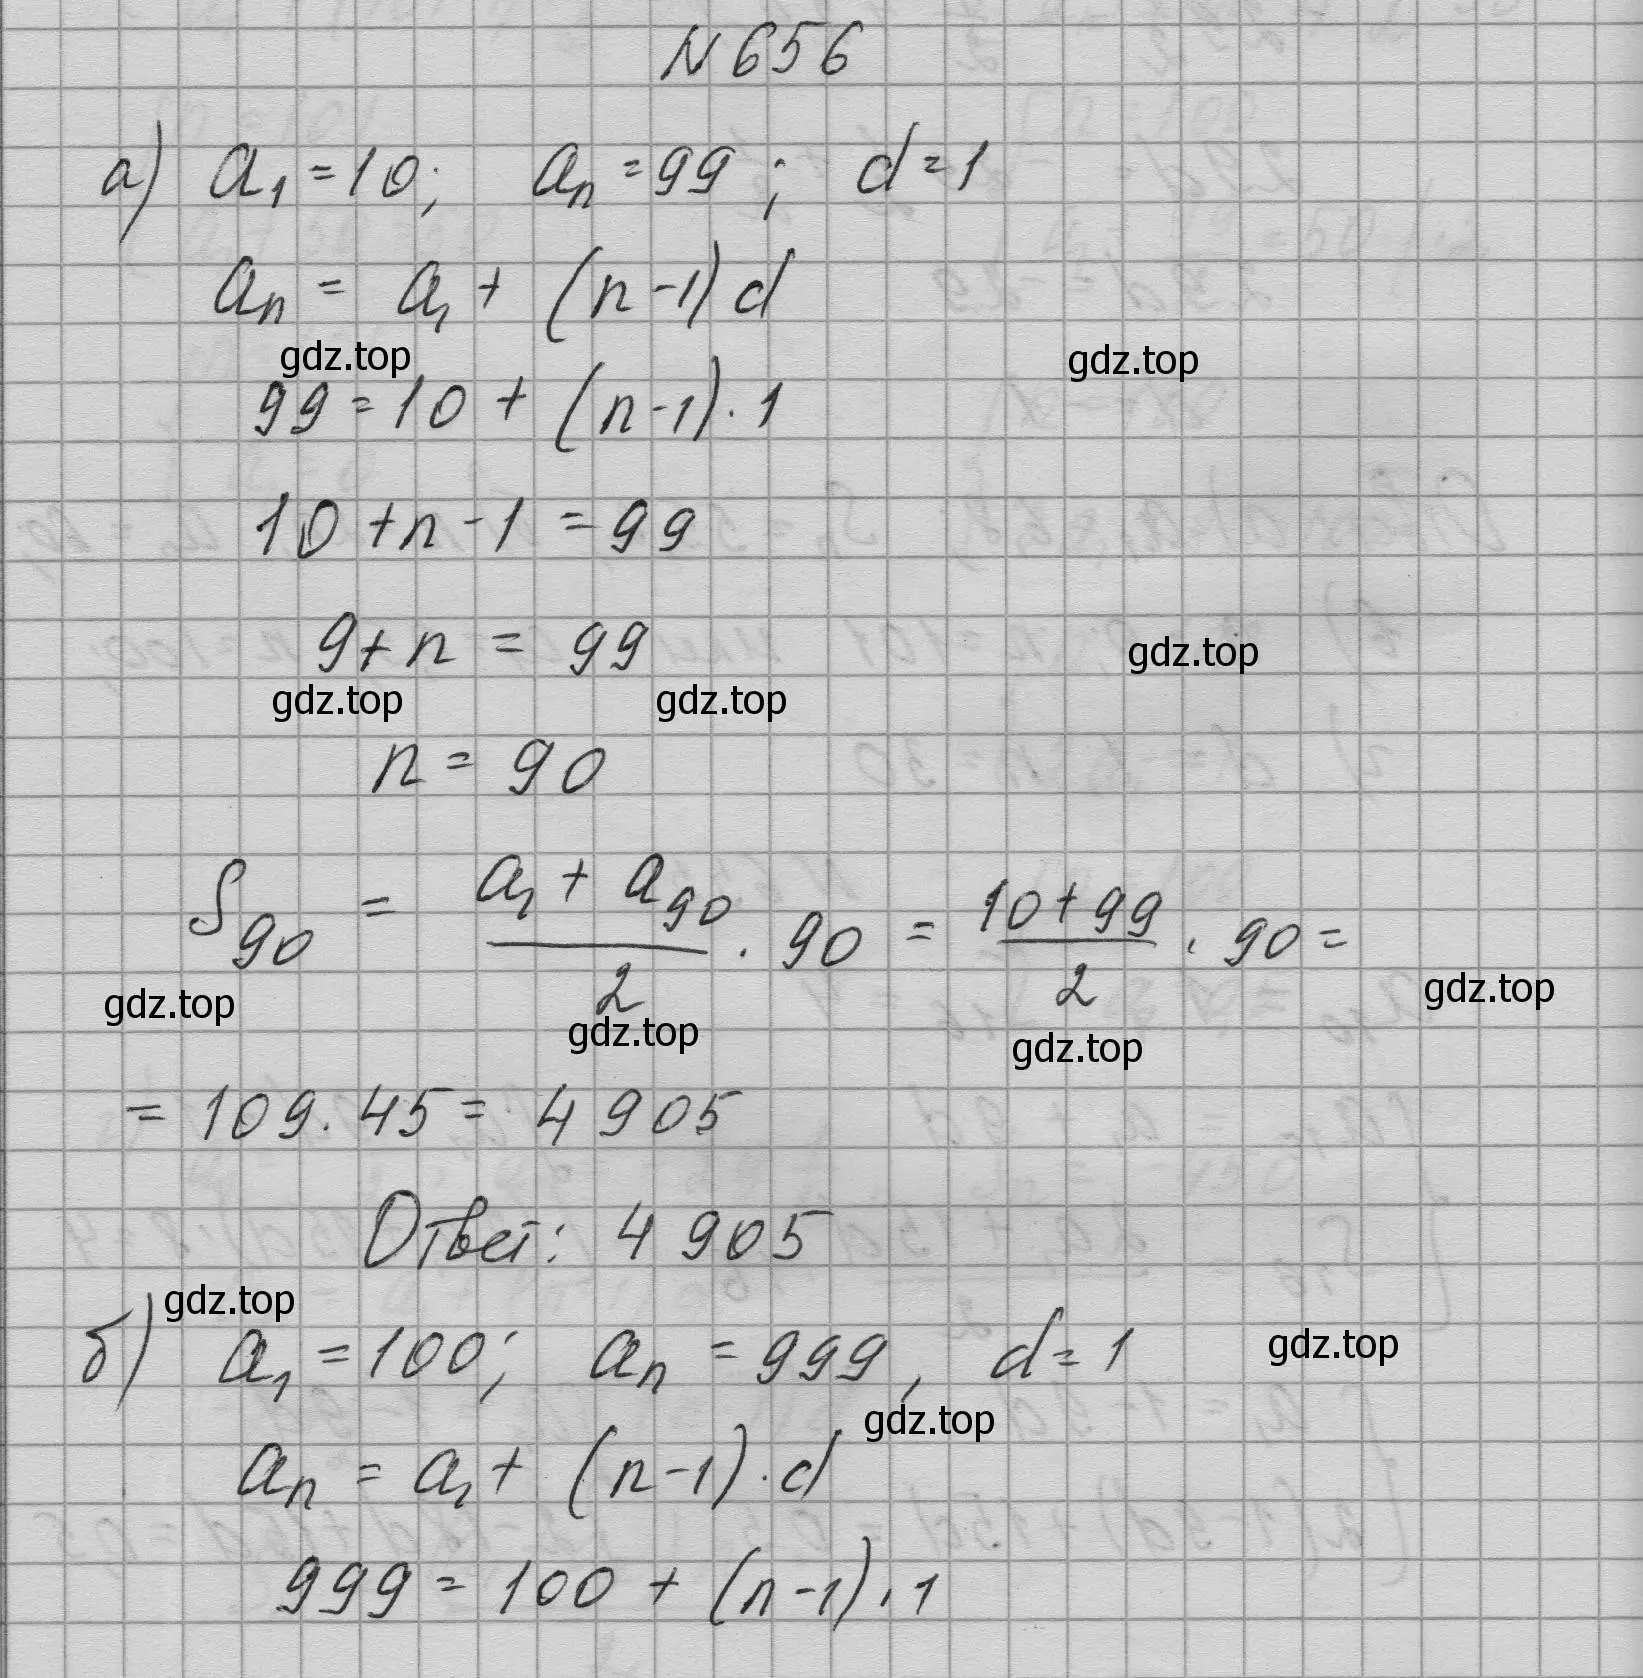 N 656
а) a₁ = 10; aₙ = 99; d = 1
aₙ = a₁ + (n - 1) d
gdz.top gdz.top
99 = 10 + (n - 1) · 1
10 + n - 1 = 99
9 + n = 99
gdz.top
gdz.top gdz.top
n = 90
S₉₀ = (a₁ + a₉₀)/2 · 90 = (10 + 99)/2 · 90 =
gdz.top gdz.top gdz.top gdz.top
= 109 · 45 = 4905
Ответ: 4905
gdz.top
б) a₁ = 100; aₙ = 999, d = 1
gdz.top
gdz.top
aₙ = a₁ + (n - 1) · d
999 = 100 + (n - 1) · 1